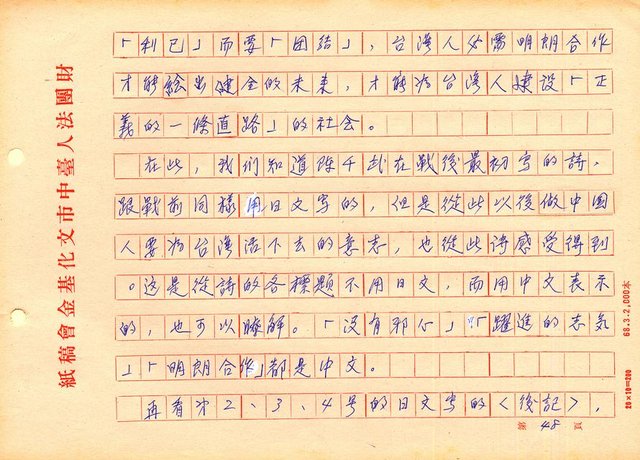 「利己」而要「团结」，台湾人必需明朗合作
才能绘出健全的未来，才能为台湾人建设「正
義的一條直路」的社会。
在此，我们知道陈千武在戰後最初写的詩，
跟戰前同樣用日文写的，但是從此以後做中国
人要为台湾活下去的意志，也從此詩感受得到
。这是從詩的各標題不用日文，而用中文表示
的，也可以瞭解。「没有邪心」「躍進的志気
」「明朗合作」都是中文。
再看第2、3、4号的日文写的〈後記〉，
財團法人臺中市文化基金會稿紙
68.3.2,000本
20×10=200
第 48 頁